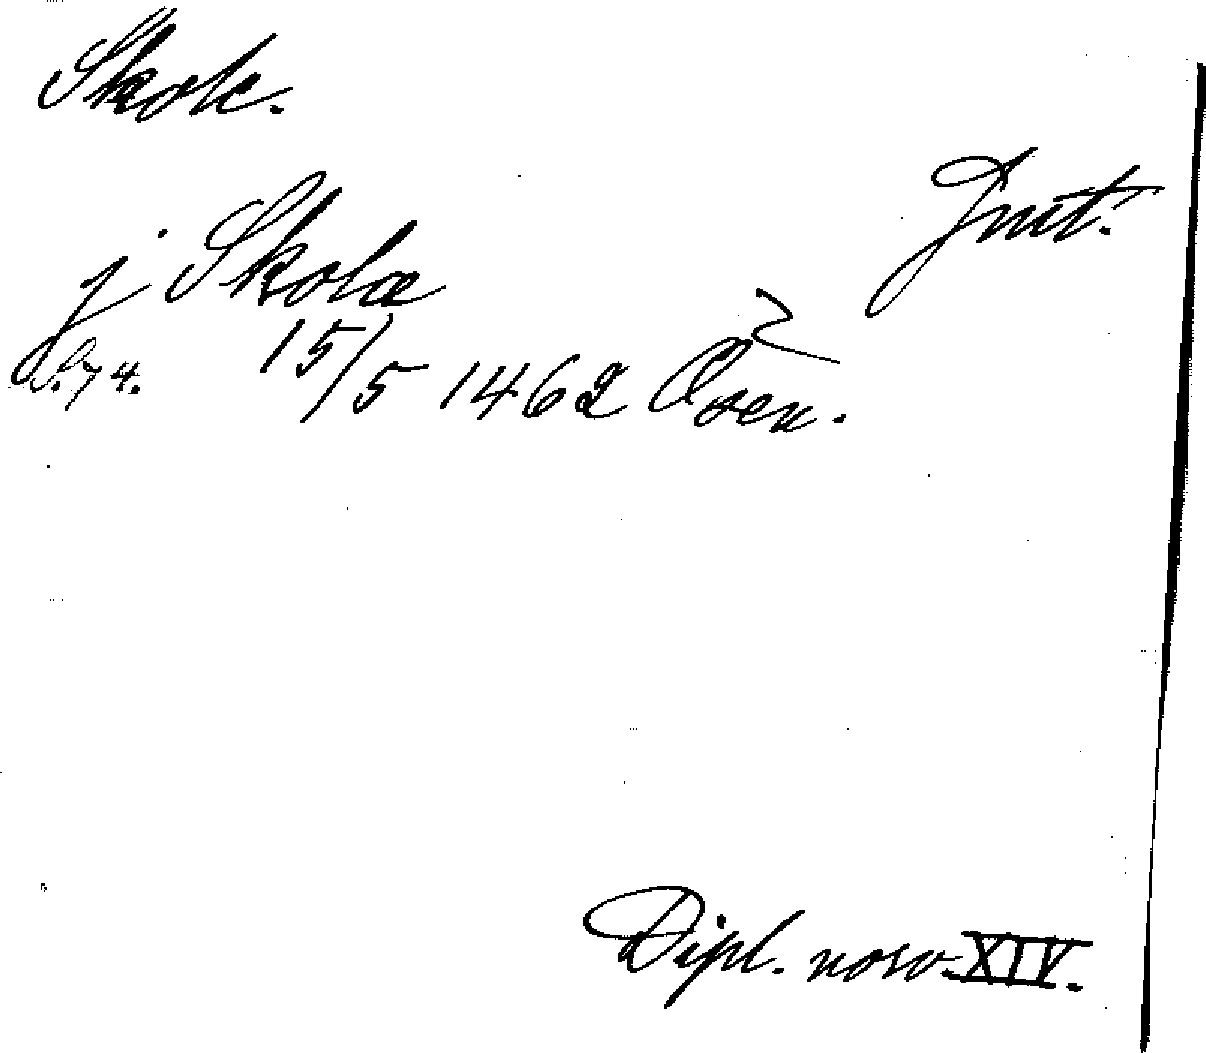 Skole.
Jmt.
j Skola
S. 74. 15/5 1462
Dipl. norv. XIV.